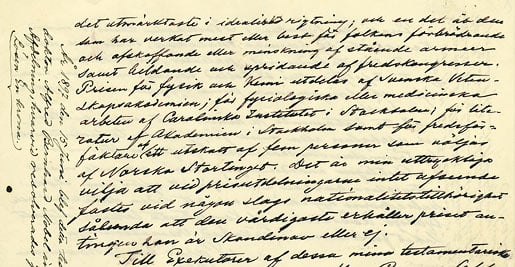 det utmärktaste i idealisk rigtning; och en del åt den
som har verkat mest eller best för folkens förbrödrande
och afskaffande eller minskning af stående armeer
samt bildande och spridande af fredskongresser.
Prisen för fysik och kemi utdelas af Svenska Veten-
skapsakademien; för fysiologiska eller medicinska
arbeten af Carolinska Institutet i Stockholm; för lite-
ratur af Akademien i Stockholm samt för fredsför-
fäktare af ett utskott af fem personer som väljas
af Norska Stortinget. Det är min uttryckliga
vilja att vid prisutdelningarne intet afseende
fästes vid någon slags nationalitetstillhörighet
sålunda att den värdigaste erhåller priset an-
tingen han är Skandinav eller ej.
Till Exekutorer af dessa mina testamentariska
År 1897 den
doktor Alfred Bernhard Nobel